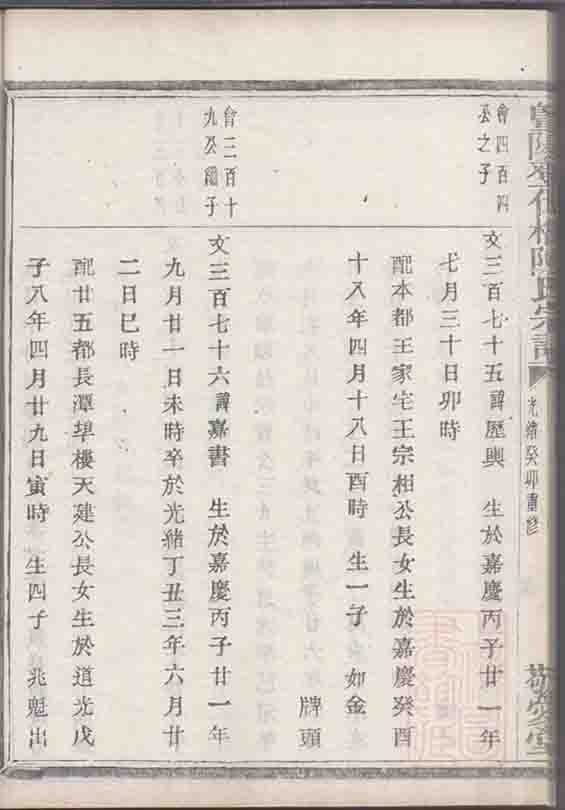 光緒癸卯重修
曾四百四
公之子
文三百七十五諱歷興 生於嘉慶丙子廿一年
七月三十日卯時
配本都王家宅王宗相公長女生於嘉慶癸酉
十八年四月十八日酉時 生一子 如金
牌頭
曾三百十
九公繼子
文三百七十六諱嘉書 生於嘉慶丙子廿一年
九月廿一日未時卒於光緒丁丑三年六月廿
二日巳時
配廿五都長潭埠樓天建公長女生於道光戊
子八年四月廿九日寅時 生四子 兆魁出